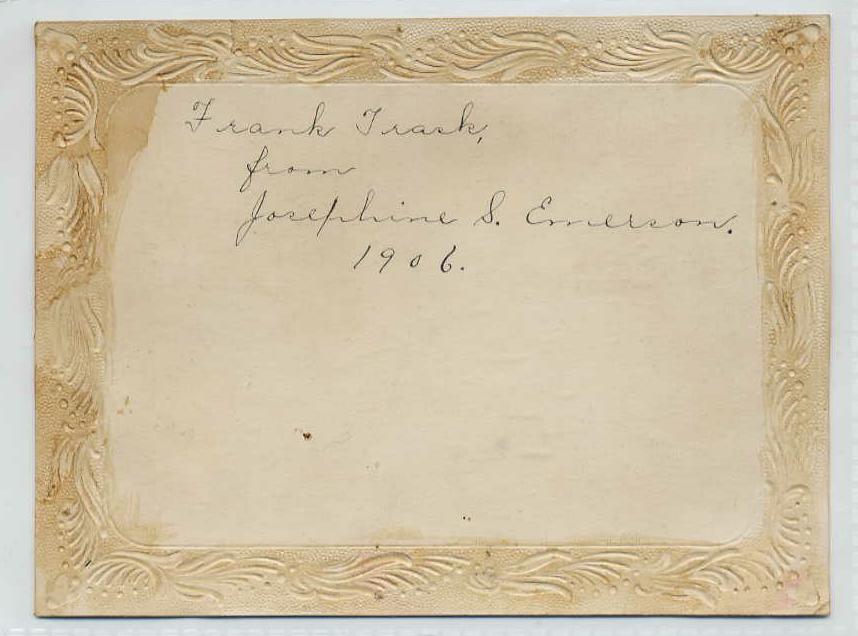 Frank Trask,
from
Josephine S. Emerson.
1906.